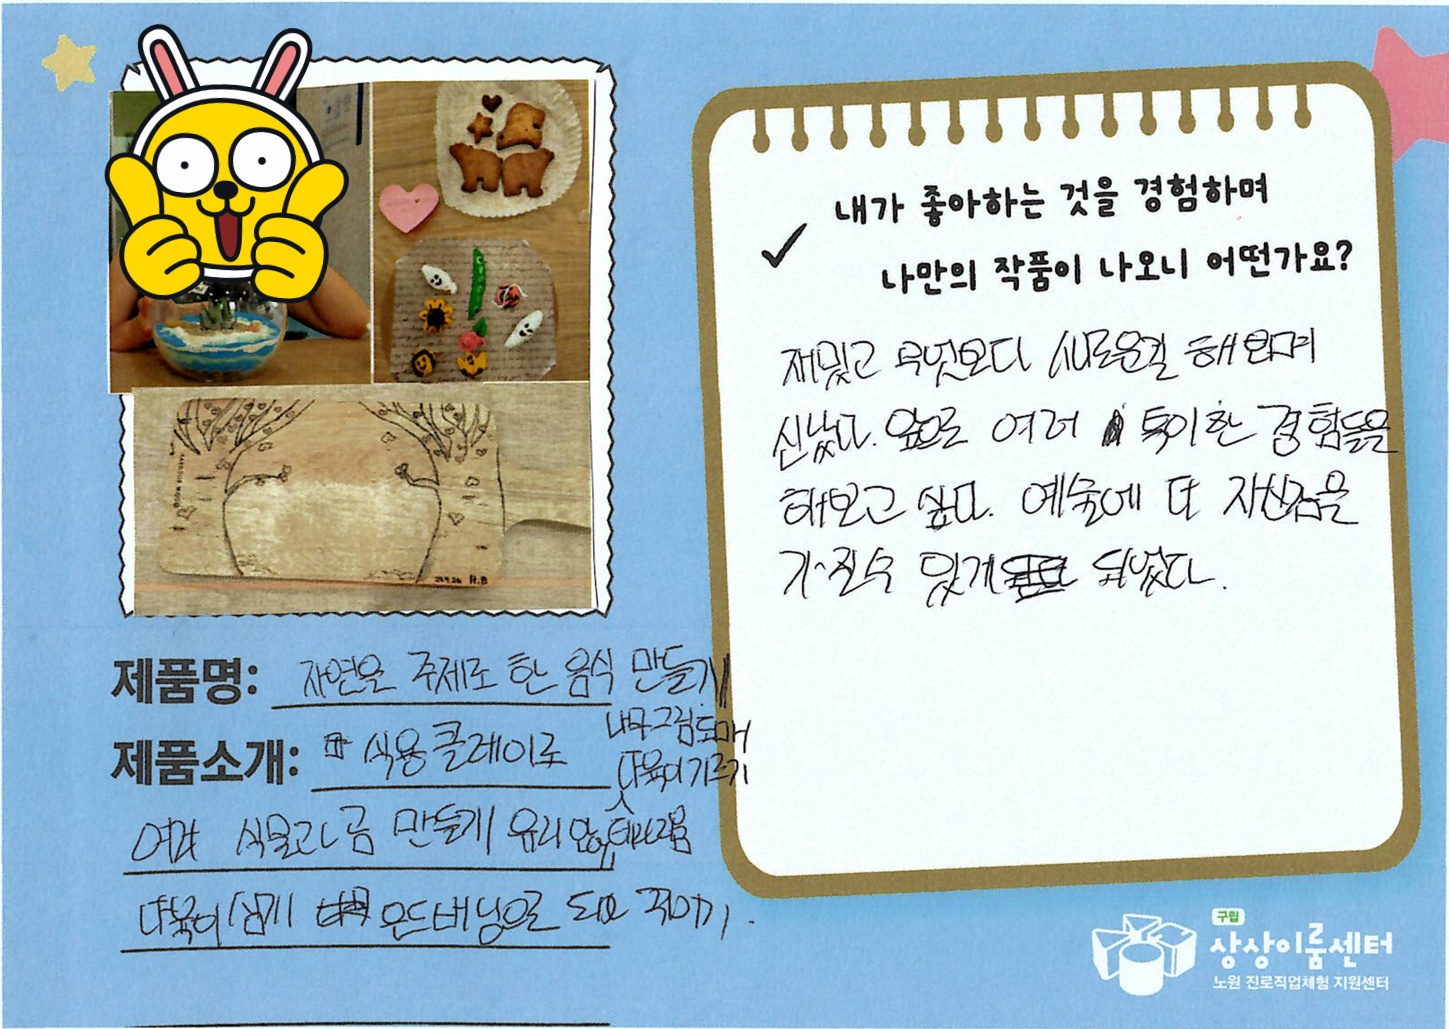 내가 좋아하는 것을 경험하며
나만의 작품이 나오니 어떤가요?
재밌고 무엇보다 새로운걸 해보며
신났다. 앞으로 여러 특이한 경험들을
해보고 싶다. 예술에 더 자신감을
가질수 있게 되었다.
제품명: 자연을 주제로 한 음식 만들기
나무그림도마
제품소개: 식용클레이로
다육이기르기
여러 식물과 곰 만들기 유리안에
다육이 심기 우드버닝으로
H.B
구립
상상이룸센터
노원 진로직업체험 지원센터